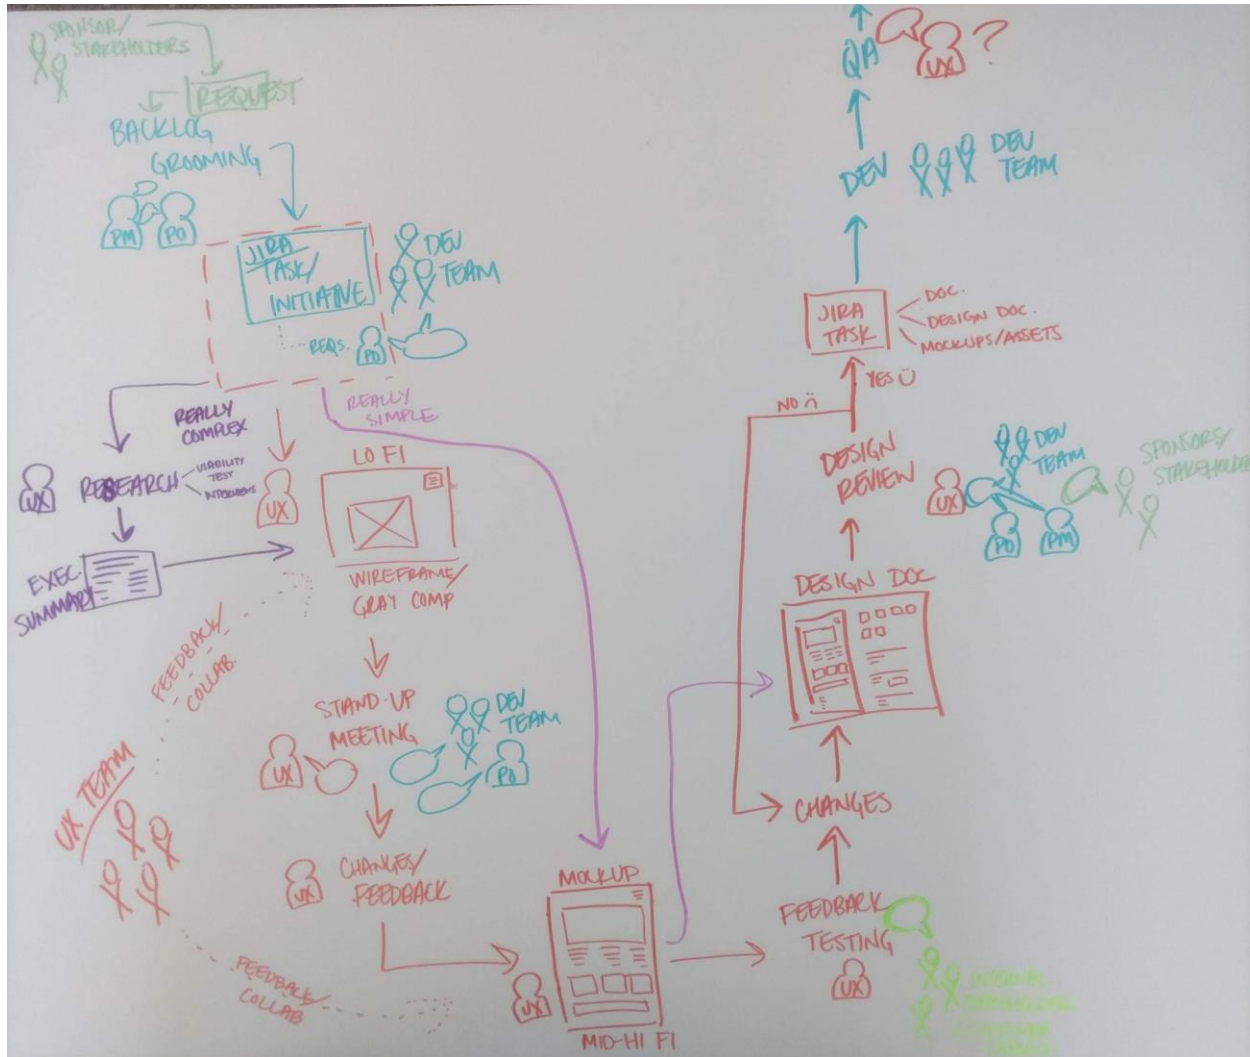 SPONSOR/
STAKEHOLDERS
REQUEST
BACKLOG
GROOMING
PM
PO
JIRA
TASK/
INITIATIVE
REQS.
PO
DEV
TEAM
REALLY
COMPLEX
REALLY
SIMPLE
UX
RESEARCH
VIABILITY
TEST
INTERVIEWS
UX
EXEC.
SUMMARY
LO FI
WIREFRAME/
GRAY COMP
FEEDBACK/
COLLAB.
STAND-UP
MEETING
UX
DEV
TEAM
PO
UX TEAM
UX
CHANGES/
FEEDBACK
FEEDBACK/
COLLAB
UX
MOCKUP
MID-HI FI
FEEDBACK
TESTING
UX
INTERNAL
CHANGES
DESIGN DOC
DESIGN
REVIEW
UX
DEV
TEAM
PO
PM
SPONSORS/
STAKEHOLDE
NO
YES
JIRA
TASK
DOC.
DESIGN DOC.
MOCKUPS/ASSETS
DEV
DEV
TEAM
QA
UX
?